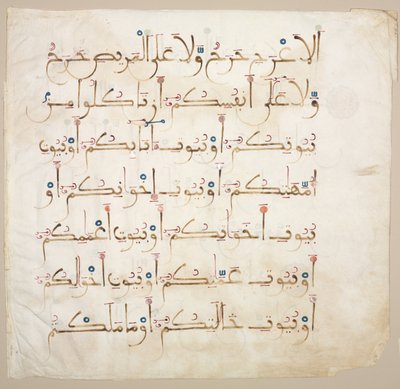 الاعرج حرج ولا على المريض حرج
ولا على أنفسكم أن تاكلوا من
بيوتكم أو بيوت ءابايكم أو بيوت
أمهتكم أو بيوت إخونكم أو
بيوت أخوتكم أو بيوت أعممكم
أو بيوت عمتكم أو بيوت أخولكم
أو بيوت خلتكم أو ما ملكتم